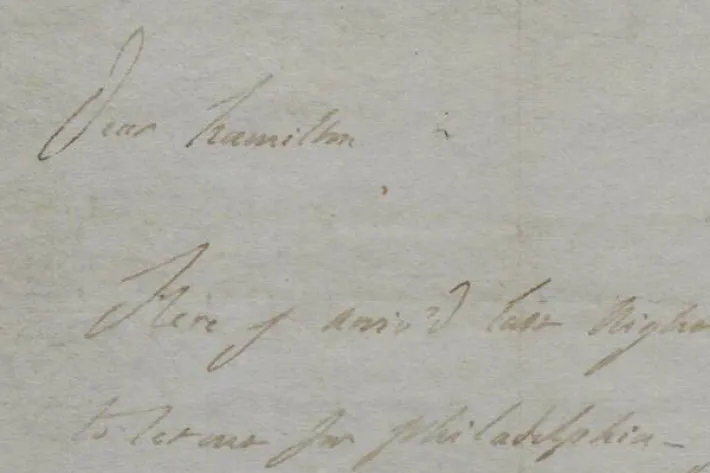 Dear hamilton
Here I arriv'd last Night
for philadelphia